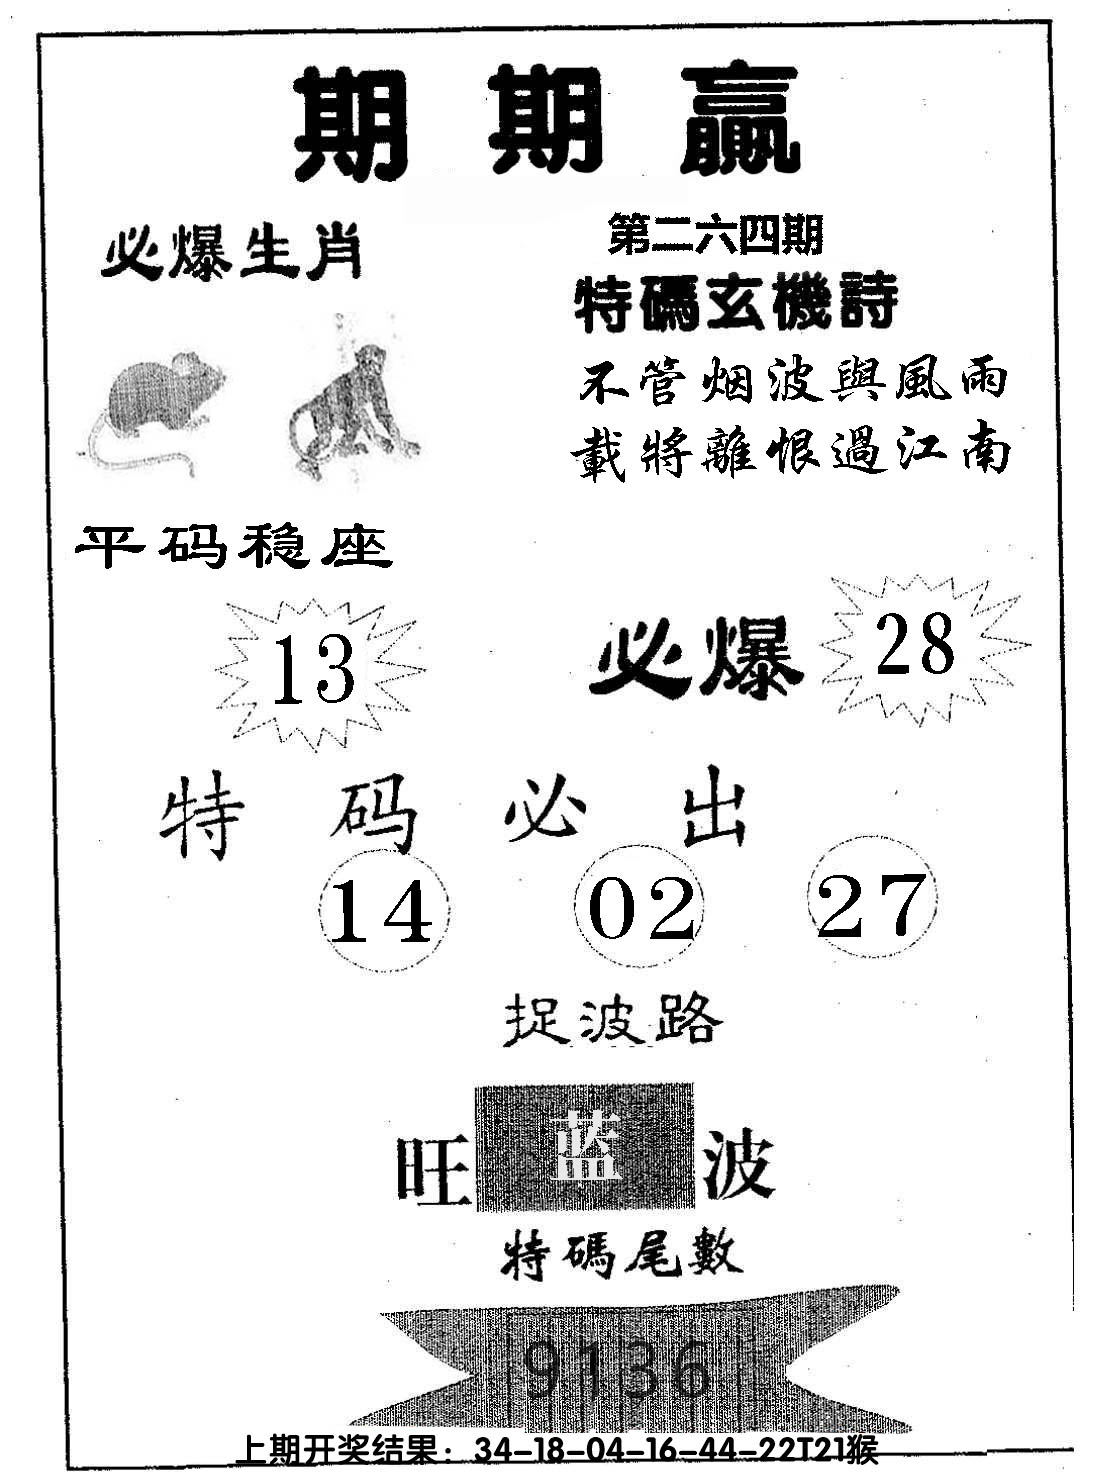 期期赢
必爆生肖
第二六四期
特碼玄機詩
不管烟波與風雨
載將離恨過江南
平码稳座
13
必爆
28
特码必出
14 02 27
捉波路
旺蓝波
特碼尾數
9136
上期开奖结果：34-18-04-16-44-22T21猴